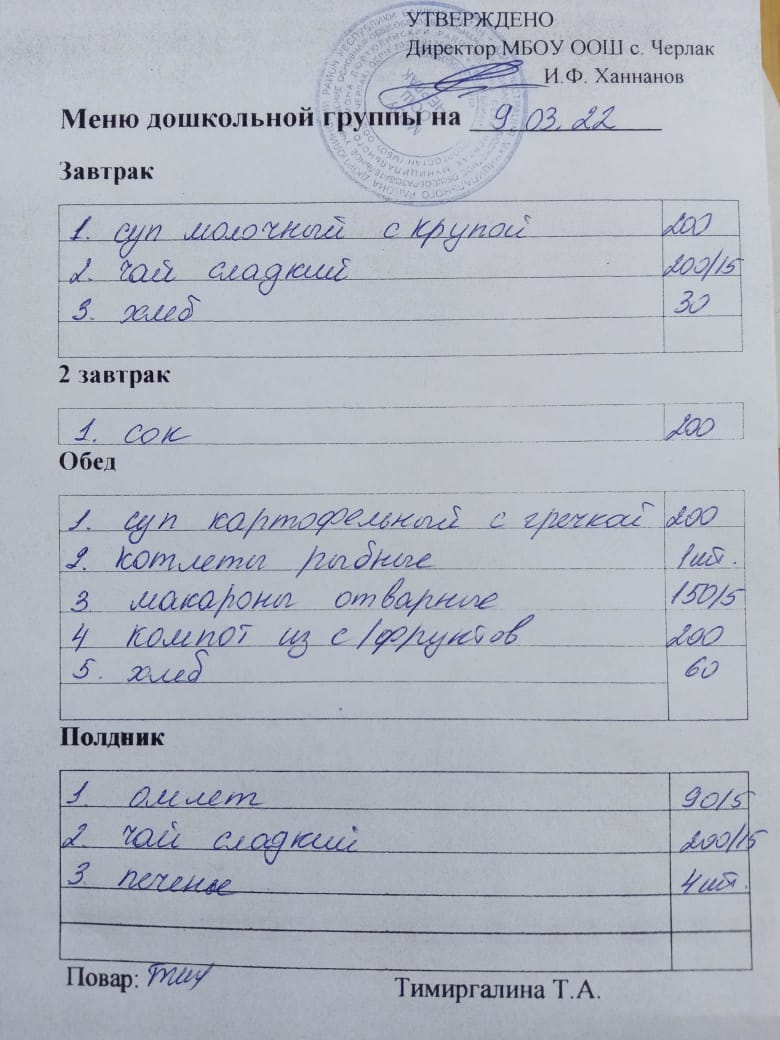 УТВЕРЖДЕНО
Директор МБОУ ООШ с. Черлак
И.Ф. Ханнанов
Меню дошкольной группы на 9 03. 22
Завтрак
1. суп молочный с крупой 200
2. чай сладкий 200/15
3. хлеб 30
2 завтрак
1. сок 200
Обед
1. суп картофельный с гречкой 200
2. котлеты рыбные 1шт.
3 макароны отварные 150/5
4 компот из с/фруктов 200
5. хлеб 60
Полдник
1. омлет 90/5
2. чай сладкий 200/15
3. печенье 4шт.
Повар:
Тимиргалина Т.А.